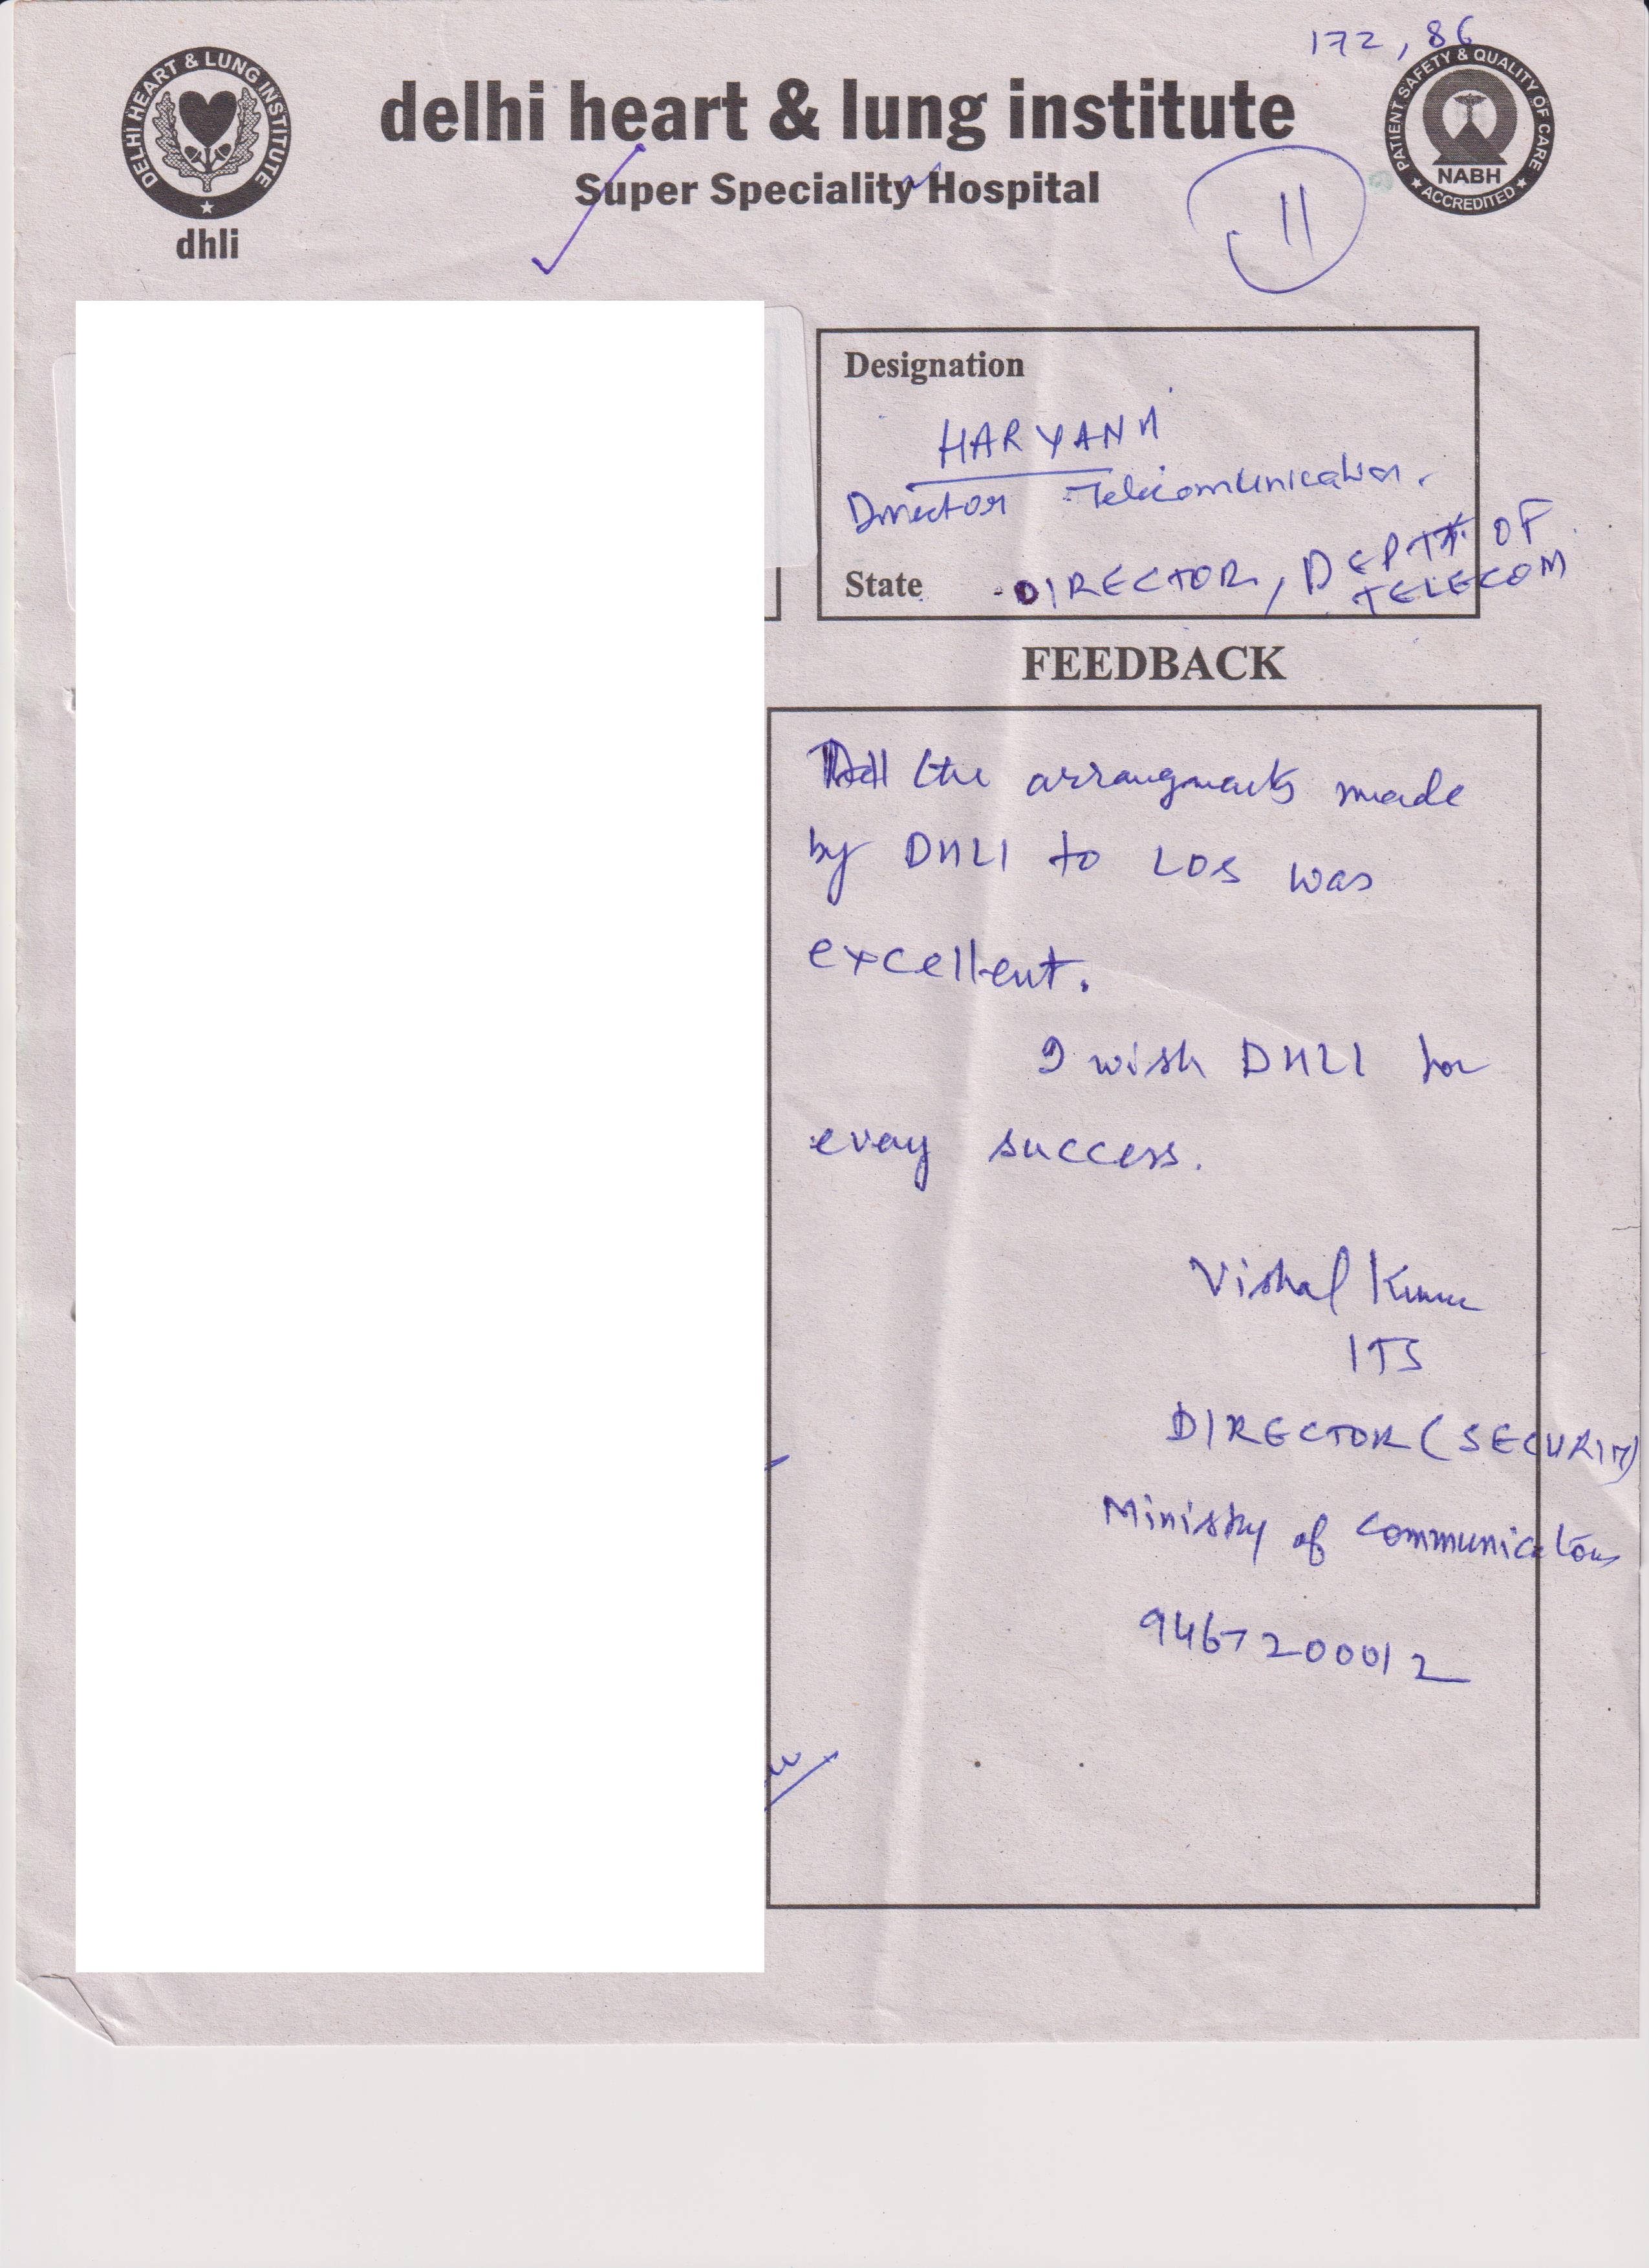 172, 86
DELHI HEART & LUNG INSTITUTE
dhli
delhi heart & lung institute
Super Speciality Hospital
PATIENT SAFETY & QUALITY OF CARE
NABH
ACCREDITED
11
Designation
HARYANA
Director Telecomunication.
State DIRECTOR, DEPTT. OF
TELECOM
FEEDBACK
All the arrangments made
by DHLI to LOS was
excellent.
I wish DHLI for
every success.
Vishal Kumar
ITS
DIRECTOR (SECURITY)
Ministry of Communications
9467200012